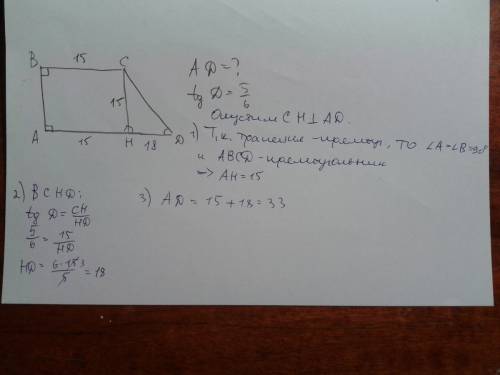 15
B C
15
A 15 H 18 D
AD = ?
tg D = 5/6
Опустим CH ⊥ AD.
1) Т.к. трапеция - прямоуг, то ∠A = ∠B = 90°
и ABCD - прямоугольник
→ AH = 15
2) В CHD:
tg D = CH/HD
5/6 = 15/HD
HD = 6·15 3/5 = 18
3) AD = 15 + 18 = 33